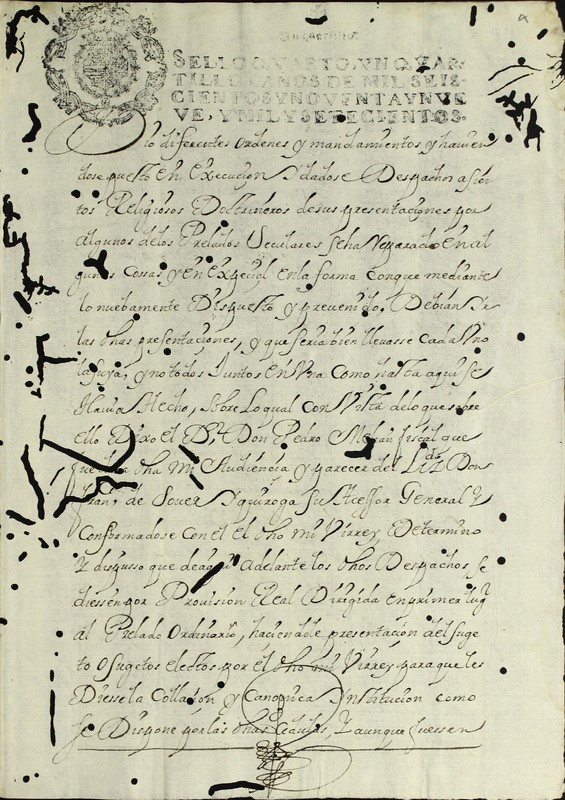 Un quartillo
SELLO QVARTO, VN QVAR-
TILLO, AÑOS DE MIL SEIS-
CIENTOS Y NOVENTA Y NVE
VE, Y MIL Y SETECIENTOS.
dio diferentes ordenes y mandamientos y havien
dose puesto en execucion y dadose Despachos a sier
tos Religiosos Doctrineros de sus presentaciones por
algunos de los Prelados Seculares se ha Reparado en al
gunas Cossas y en especial en la forma con que mediante
lo nuebamente Dispuesto y prevenido, Debian Yr
las dhas presentaciones, y que seria bien llevasse Cada Uno
la suya, y no todos Juntos en Una Como hasta aqui se
Havia Hecho, sobre lo qual con Vista de lo que sobre
ello Dixo el D.r Don Pedro fiscal que
fue de la dha mi Audiencia y parecer del Lizdo Don
fran.co de y quiroga su Assessor General Y
Conformadose con el el dho mi Virrey Determino
Y dispusso que de aqui adelante los dhos Despachos se
diessen por Provision Real Dirigida en primer lug.r
al Prelado Ordinario, haciendole presentacion del suge
to o sugetos electos por el dho mi Virrey para que les
Diese la Collazion y Canonica Institucion como
se Dispone por las dhas Cedulas, Y aunque fuessen